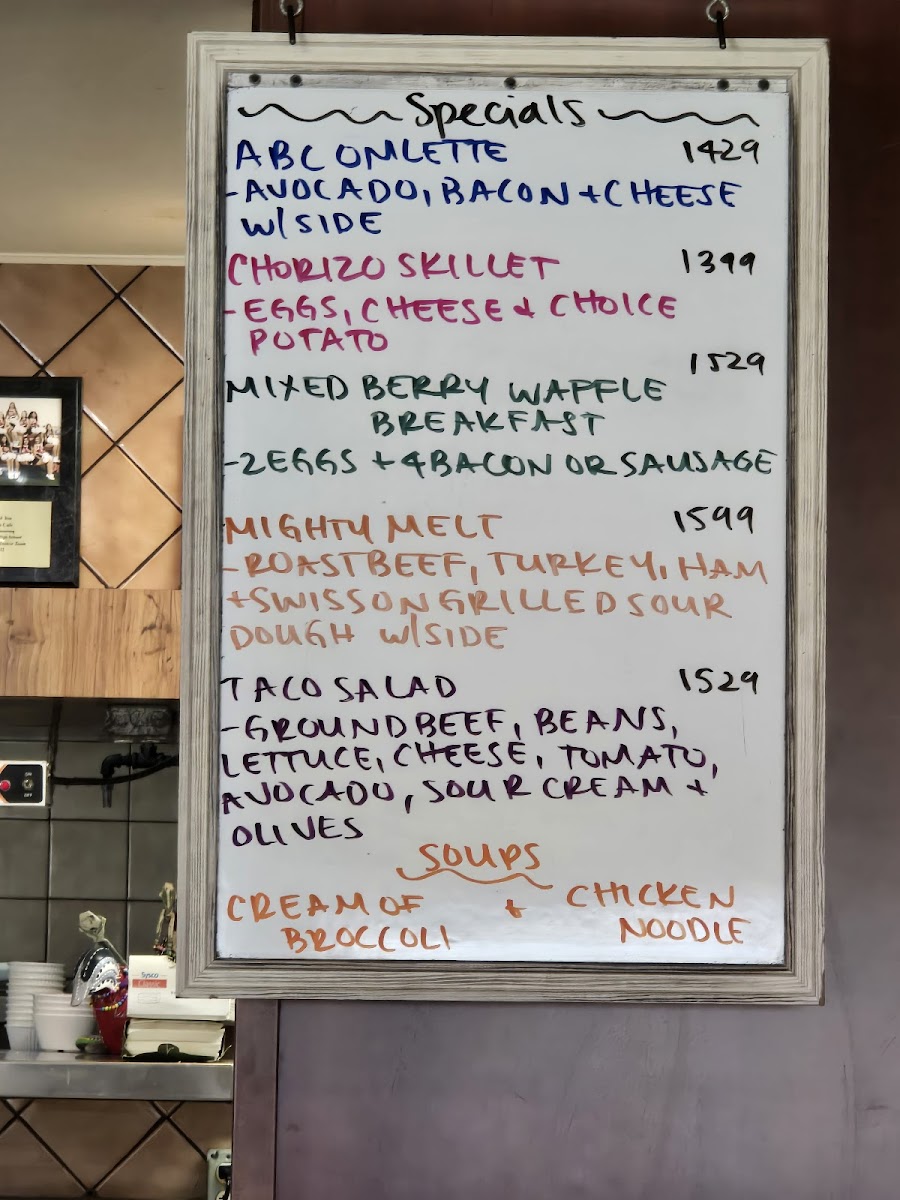 Specials
ABC OMLETTE 1429
-AVOCADO, BACON + CHEESE
W/ SIDE
CHORIZO SKILLET 1399
-EGGS, CHEESE & CHOICE
POTATO
1529
MIXED BERRY WAFFLE
BREAKFAST
-2 EGGS + 4 BACON OR SAUSAGE
MIGHTY MELT 1599
-ROAST BEEF, TURKEY, HAM
+ SWISS ON GRILLED SOUR
DOUGH W/ SIDE
TACO SALAD 1529
-GROUND BEEF, BEANS,
LETTUCE, CHEESE, TOMATO,
AVOCADO, SOUR CREAM &
OLIVES
SOUPS
CREAM OF & CHICKEN
BROCCOLI NOODLE
ON
OFF
Sysco
Classic